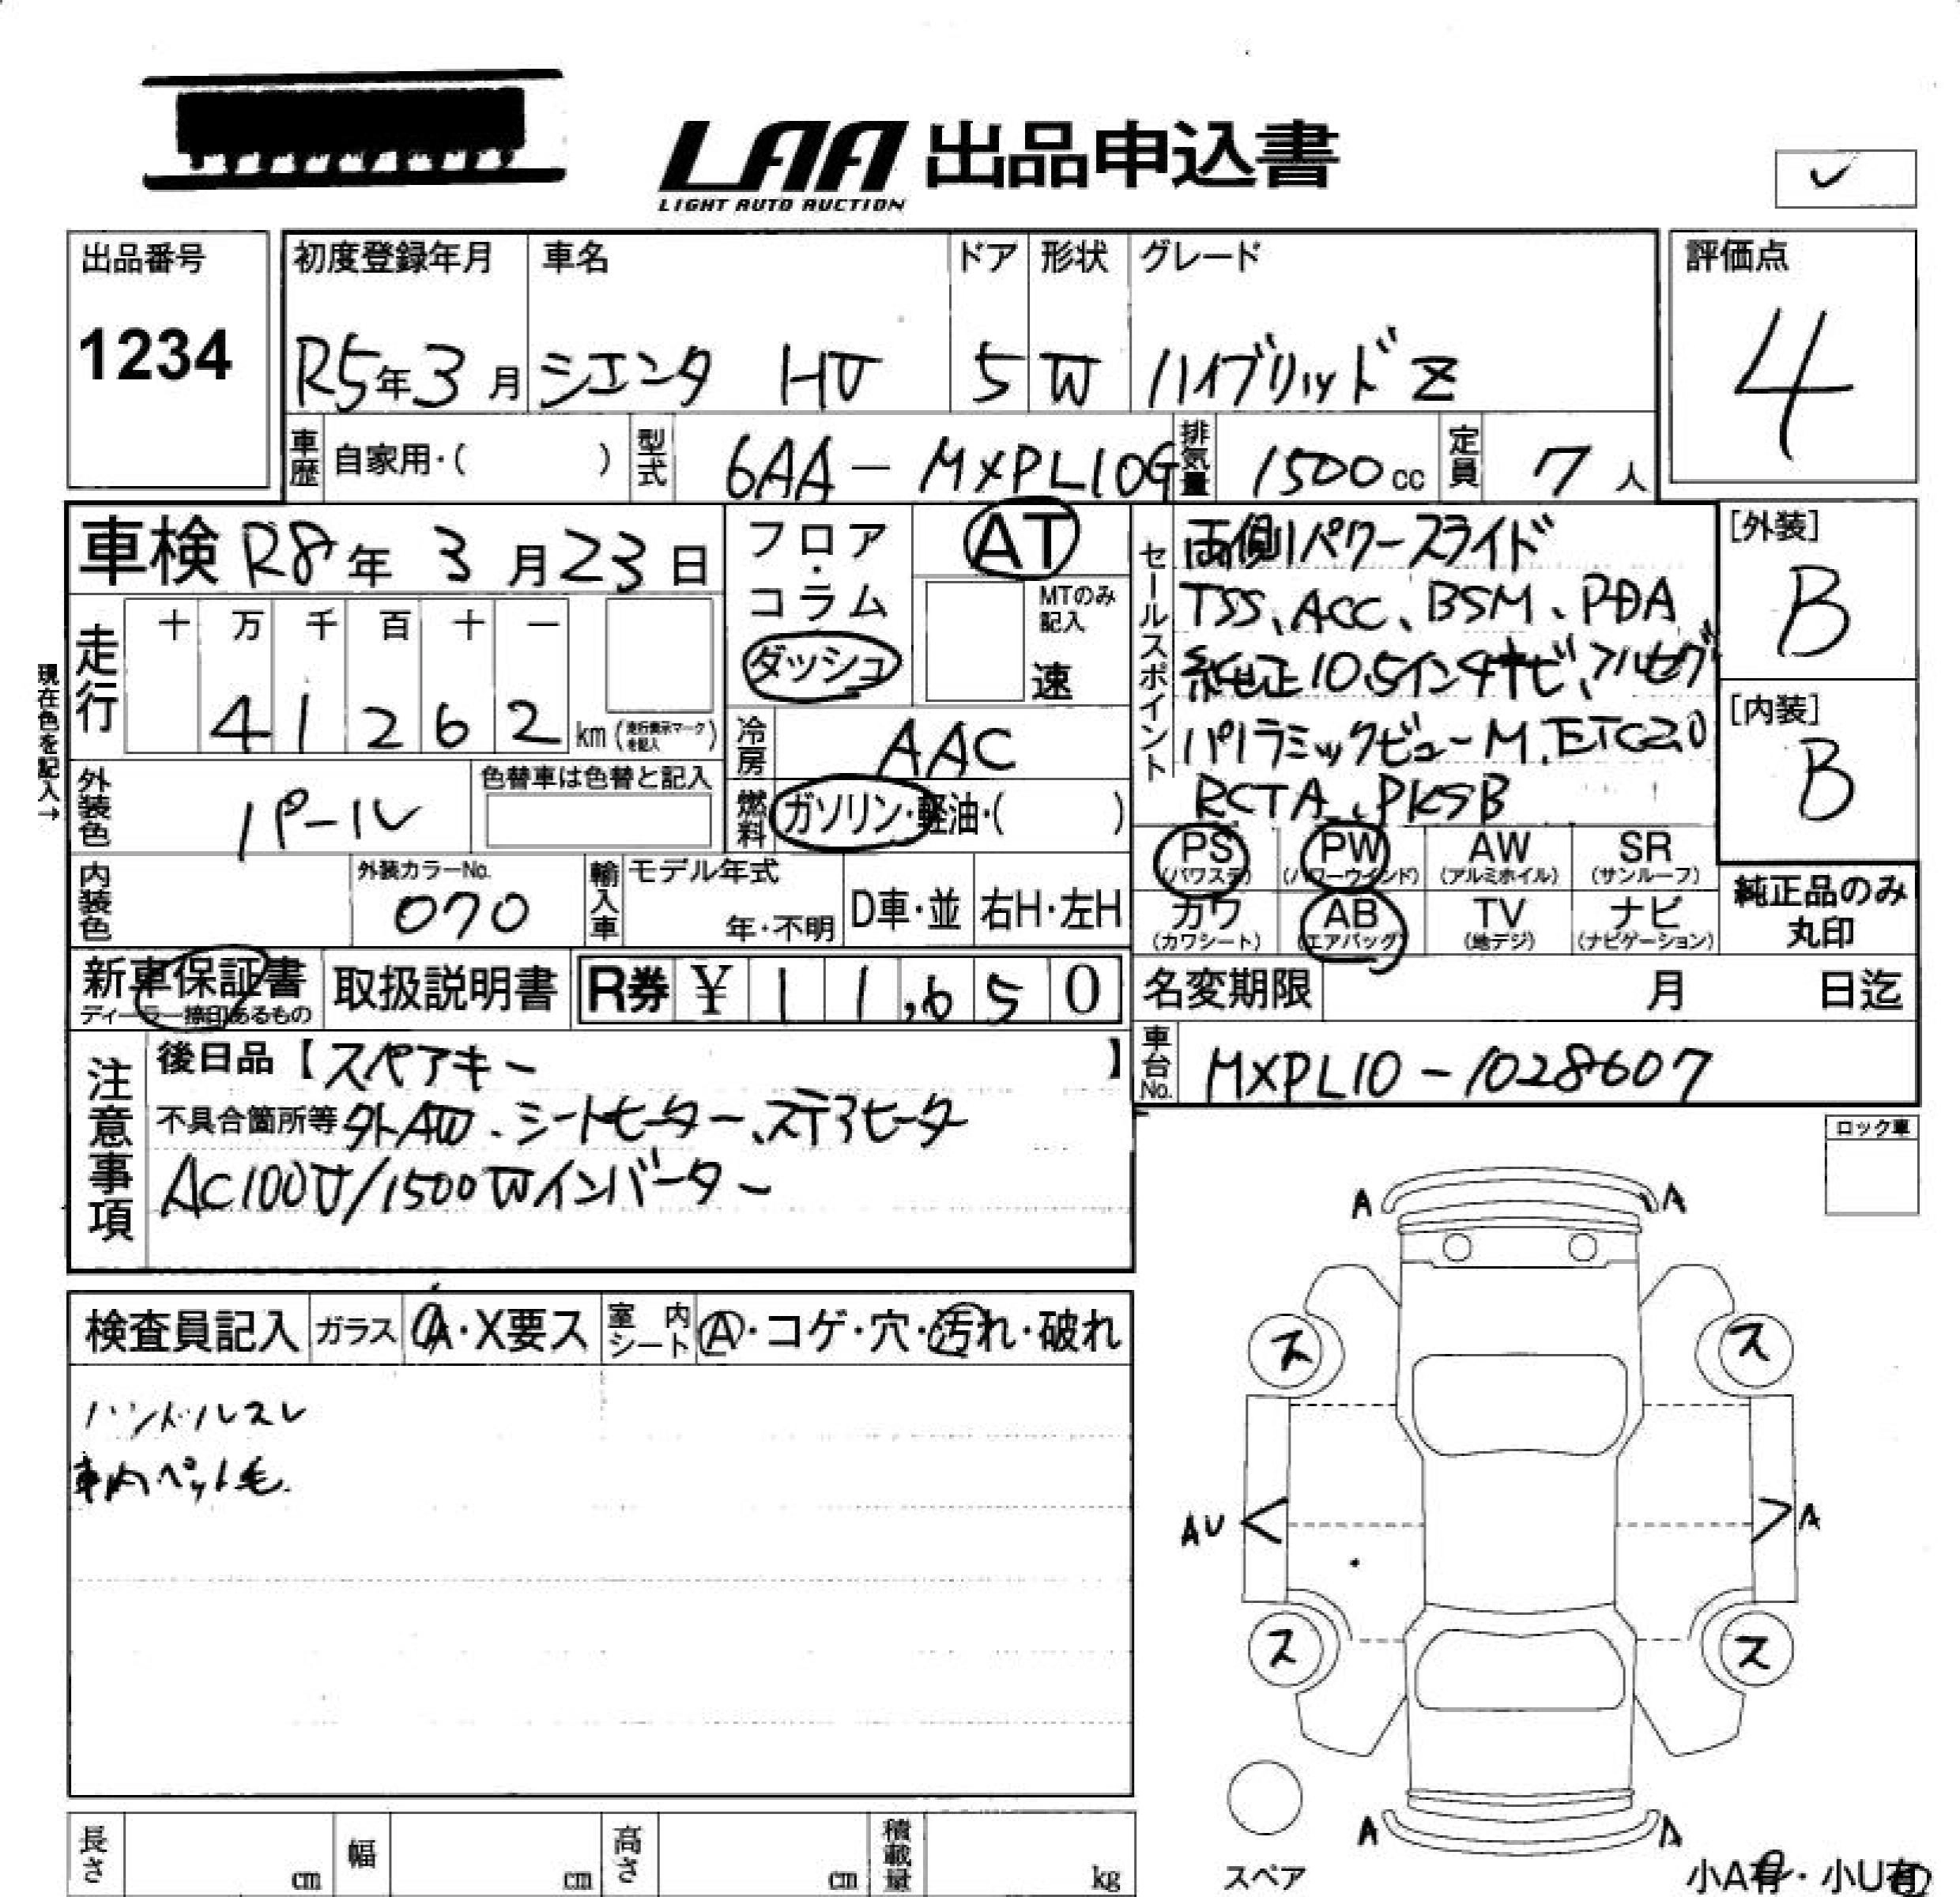 LAA 出品申込書
LIGHT AUTO AUCTION
出品番号
1234
初度登録年月
R5年3月
車名
シエンタ HV
ドア
5
形状
W
グレード
ハイブリッド Z
評価点
4
車歴 自家用・( )
型式 6AA-MXPL10G
排気量 1500cc
定員 7人
車検 R8年3月23日
現在色を記入→
走行 十 万 千 百 十 一
41262 km(走行表示マークを記入)
フロア・コラム
ダッシュ
AT
MTのみ記入
速
冷房 AAC
燃料 ガソリン・軽油・( )
外装色 パール
色替車は色替と記入
内装色
外装カラーNo.
070
輸入車
モデル年式
年・不明
D車・並
右H・左H
セールスポイント
両側パワースライド
TSS、ACC、BSM、PDA
純正10.5インチナビ、フルセグ
パノラミックビューM、ETC2.0
RCTA、PKSB
[外装]
B
[内装]
B
PS (パワステ)
PW (パワーウインド)
AW (アルミホイル)
SR (サンルーフ)
カワ (カワシート)
AB (エアバッグ)
TV (地デジ)
ナビ (ナビゲーション)
純正品のみ
丸印
新車保証書
ディーラー捺印あるもの
取扱説明書
R券 ¥11,650
名変期限 月 日迄
車台No. MXPL10-1028607
注意事項
後日品【スペアキー 】
不具合箇所等 外AW、シートヒーター、ステアヒーター
AC100V/1500Wインバーター
ロック車
検査員記入
ガラス A・X要ス
室内シート A・コゲ・穴・汚れ・破れ
ハンドルスレ
車内ペット毛
A A
ス ス
AU A
ス ス
A A
スペア
小A有・小U有
長さ cm
幅 cm
高さ cm
積載量 kg